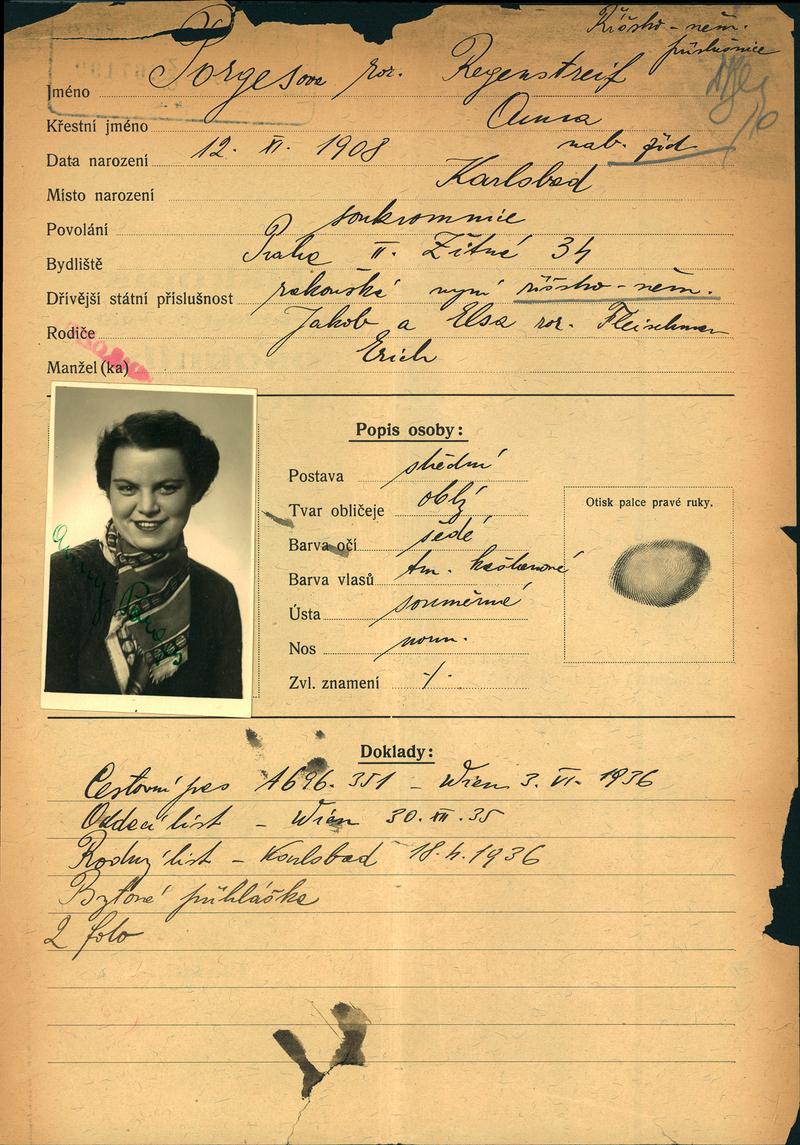 Říšsko-něm.
příslušnice
Jméno Porgesova roz. Regenstreif
Křestní jméno Anna
Data narození 12. XI. 1908 nab. žid.
Místo narození Karlsbad
Povolání soukromnice
Bydliště Praha II. Žitná 34
Dřívější státní příslušnost rakouská nyní říšsko-něm.
Rodiče Jakob a Elsa roz. Fleischman
Manžel (ka) Erich
Popis osoby:
Postava střední
Tvar obličeje oblý
Barva očí šedé
Barva vlasů tm. kaštanové
Ústa souměrné
Nos norm.
Zvl. znamení -/-
Otisk palce pravé ruky.
Doklady:
Cestovní pas A696.351 - Wien 3. VI. 1936
Oddací list - Wien 30. XII. 35
Rodný list - Karlsbad 18.4.1936
Bytové přihláška
2 foto